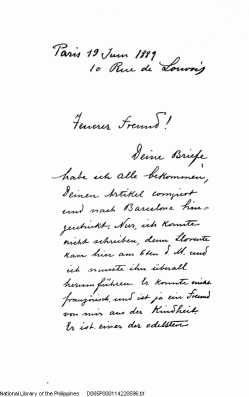 Paris 19 Juni 1889
10 Rue de Louvois
Teuerer Freund!
Deine Briefe
habe ich alle bekommen,
Deinen Artikel corrigiert
und nach Barcelona hin-
geschickt; Nur, ich konnte
nicht schreiben, denn Llorente
kam hier am 6ten d M. und
ich musste ihn überall
herumführen. Er konnte nicht
französisch, und ist ja ein Freund
von mir aus der Kindheit.
Er ist einer der edelsten
National Library of the Philippines D065P000114228596.tif